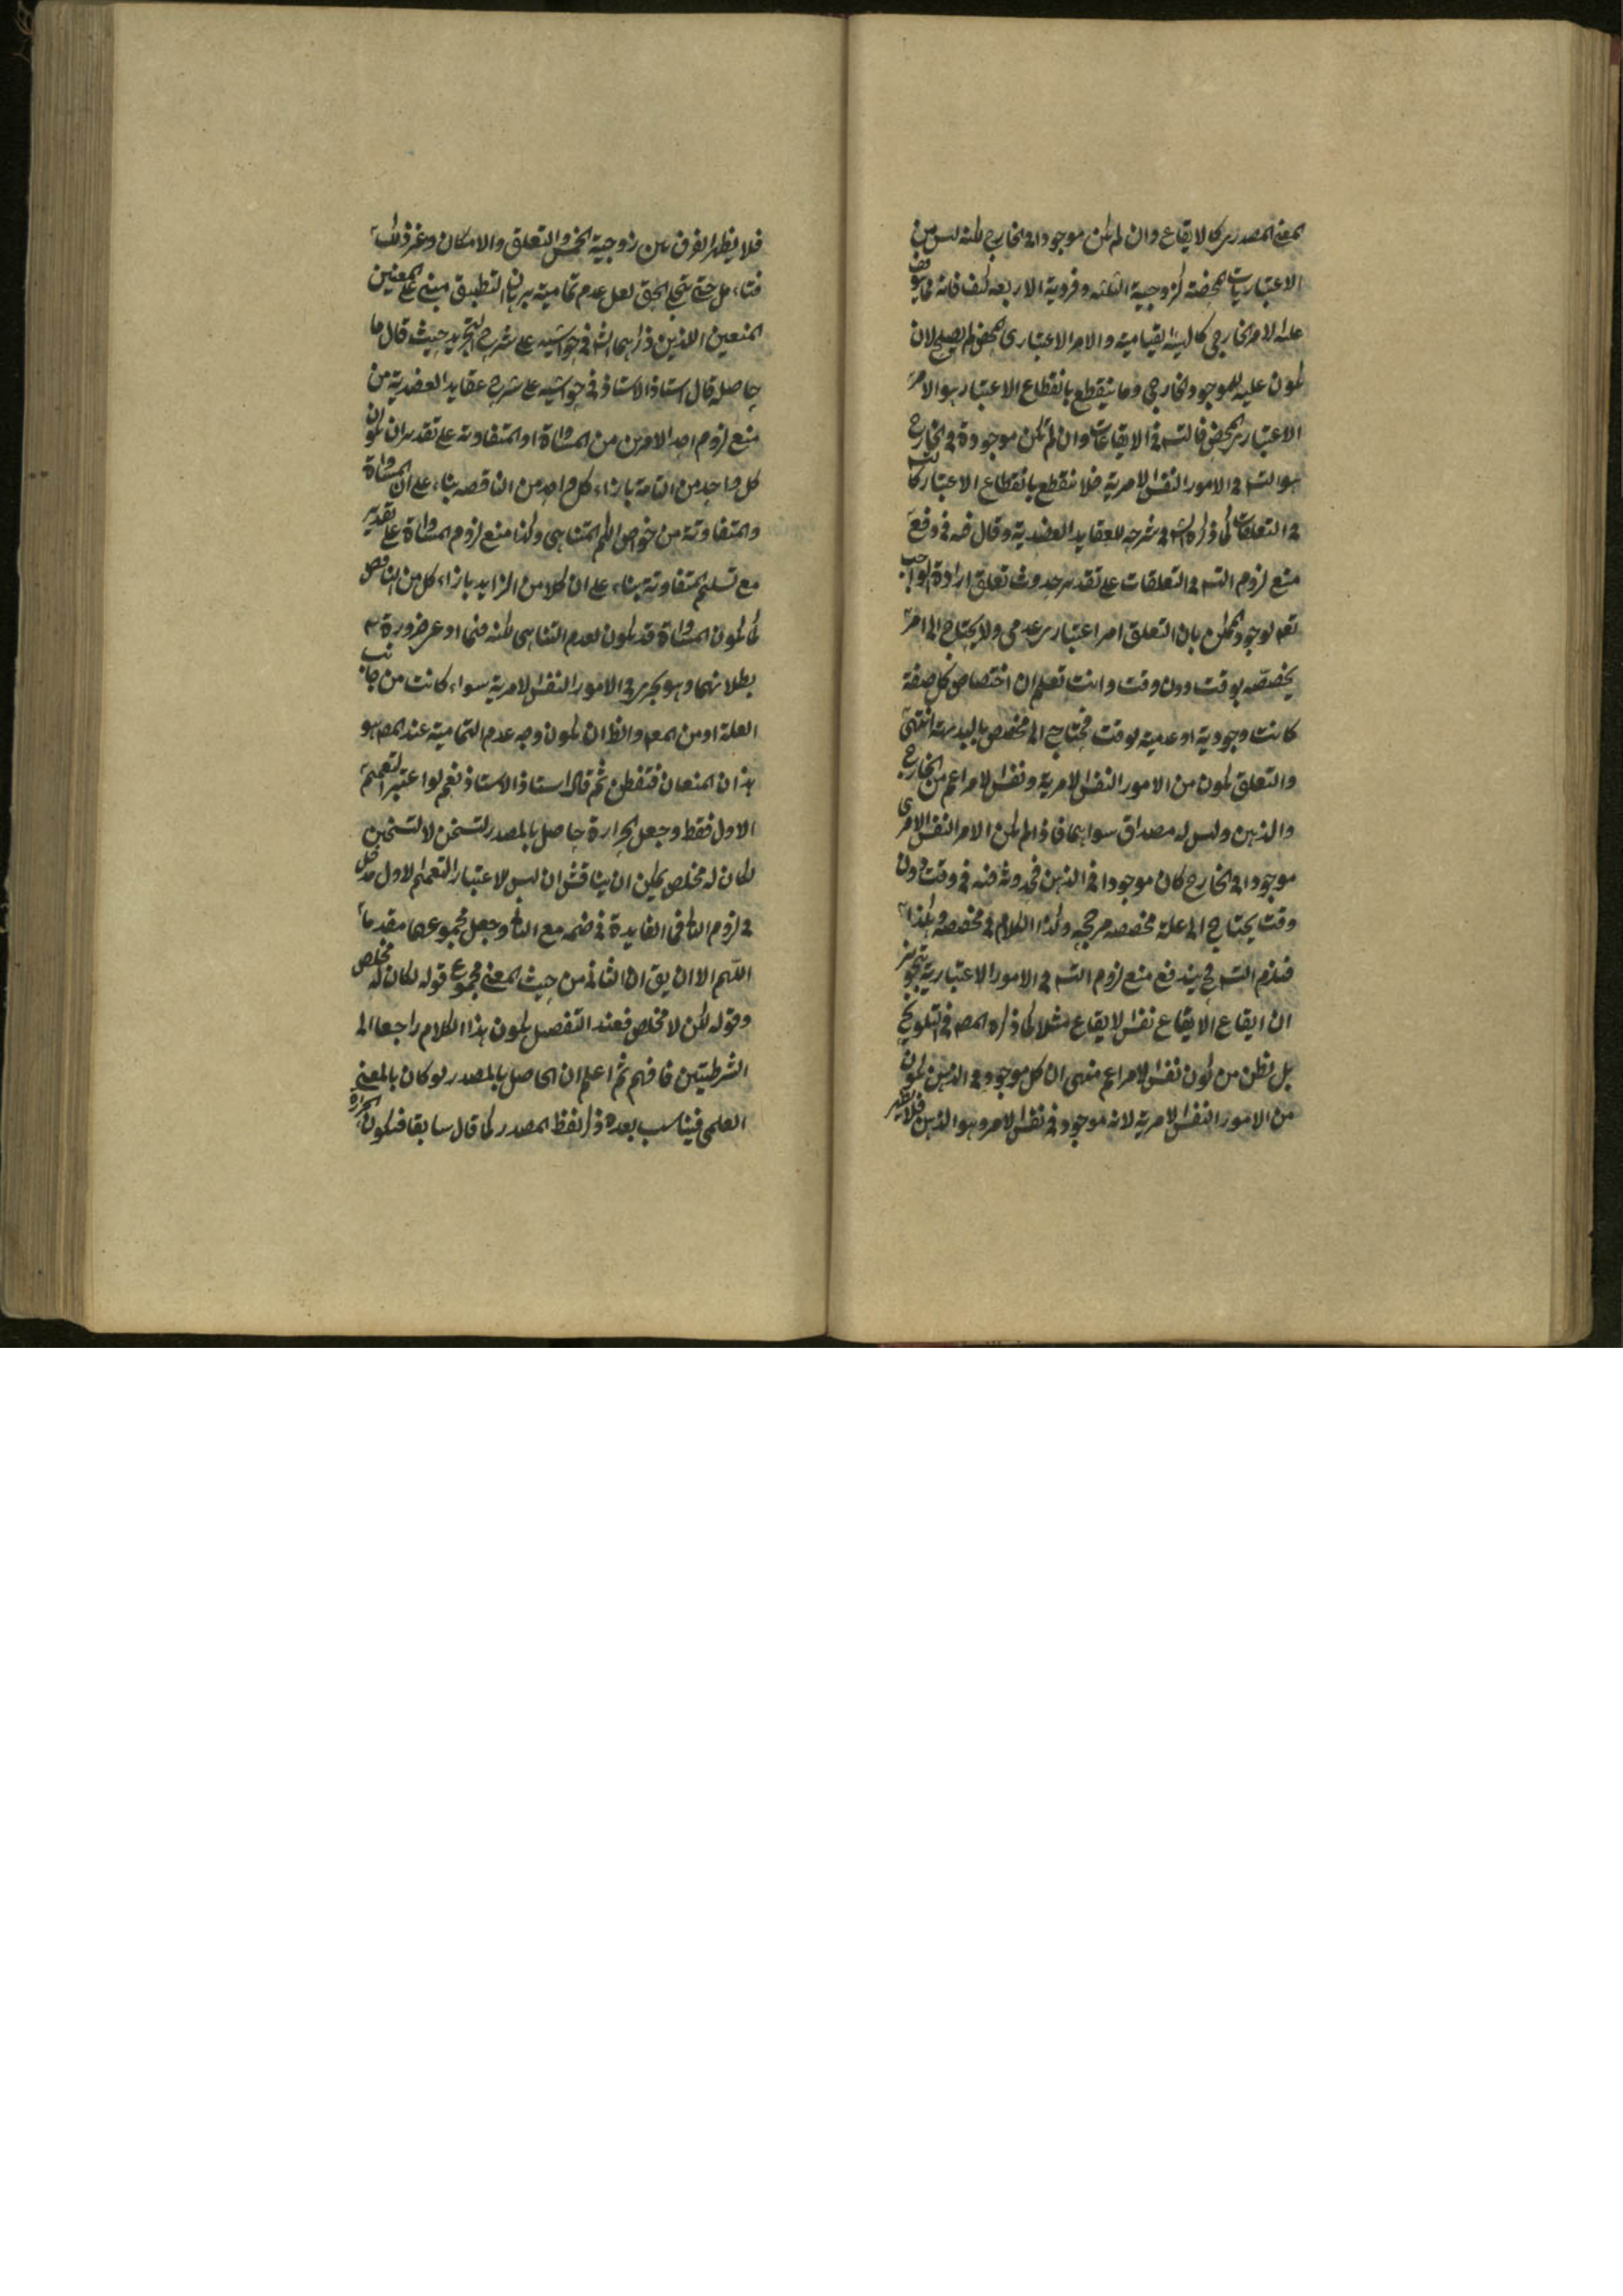 المعنى المصدرى كالايقاع وان لم يكن موجودا فى الخارج لكنه ليس من
الاعتباريات المحضة كزوجية الثلثه وفردية الاربعه كيف فانه مما يتوقف
عليه الامر الخارجى كالهيئة القيامية والامر الاعتبارى المحض لم يصلح لان
يكون علية للموجود الخارجى وما ينقطع بانقطاع الاعتبار هو الامر
الاعتبارى المحض فالتسـ فى الايقاعات وان لم تكن موجودة فى الخارج
هو التسـ فى الامور النفس الامرية فلا ينقطع بانقطاع الاعتبار كالتسـ
فى التعلقات كما ذكره الشـ فى شرحه للعقايد العضدية وقال فيه فى دفع
منع لزوم التسـ فى التعلقات على تقدير حدوث تعلق ارادة الواجب
تعـ لوجود الممكن بان التعلق امر اعتبارى عدمى ولا يحتاج الى امر
يخصصه بوقت دون وقت وانت تعلم ان اختصاص كل صفة
كانت وجودية او عدمية بوقت يحتاج الى مخصص بالبديهة انتهى
والتعلق يكون من الامور النفس الامرية ونفس الامر اعم من الخارج
والذهن وليس له مصداق سواهما فاذا لم يكن الامر النفس الامرى
موجودا فى الخارج كان موجودا فى الذهن فحدوثه فيه فى وقت دون
وقت يحتاج الى علة مخصصه مرجحه وكذا الكلام فى مخصصه وهكذا
فيلزم التسـ فح يندفع منع لزوم التسـ فى الامور الاعتبارية بتجويز
ان ايقاع الايقاع نفس الايقاع مثلا كما ذكره المصـ فى التلويح
بل نظن من كون نفس الامر اعم منهما ان كل موجود فى الذهن يكون
من الامور النفس الامرية لانه موجود فى نفس الامر وهو الذهن فلا يظهر
فلا يظهر الفرق بين زوجية الخمس والتعلق والامكان وغير ذلك
فتأمل حتى يتجلى الحق لعل عدم تمامية برهان التطبيق مبنى على المعنيين
المنعين اللذين ذكرهما الشـ فى حواشيه على شرح التجريد حيث قال ما
حاصله قال استاذ الاستاذ فى حواشيه على شرح عقايد العضدية من
منع لزوم احد الامرين من المساواة او المتفاوتة على تقدير ان يكون
كل واحد من التامة بازاء كل واحد من الناقصه بناء على ان المساواة
والمتفاوتة من خواص الكم المتناهى وكذا منع لزوم المساواة على تقدير
مع تسليم المتفاوتة بناء على ان كلا من الزايد بازاء كل من الناقص
كما يكون المساواة قد يكون لعدم التناهى لكنه فيما ادعى ضرورة
بطلانهما وهو يجرى فى الامور النفس الامرية سواء كانت من جانب
العلة او من المعـ والظـ ان يكون وجه عدم التمامية عند المصـ هو
هذان المنعان فتفطن ثم قال استاذ الاستاذ نعم لو اعتبر التعميم
الاول فقط وجعل الحرارة حاصل بالمصدر لتسخن لا لتسخين
لكان له مخلص يمكن ان يناقش ان ليس لاعتبار التعميم الاول مدخل
فى لزوم التالى فى الفايدة فى ضمه مع الثانى وجعل مجموعهما مقدما
اللهم الا ان يقـ ان الثانى من حيث المعنى مجموع قوله لكان له مخلص
وقوله لكن لا مخلص فعند التفصيل يكون هذا الكلام راجعا الى
الشرطيتين فافهم ثم اعلم ان الحاصل بالمصدر لو كان بالمعنى
العلمى فيناسب بعده ذكر لفظ المصدر كما قال سابقا فيكون الحرارة